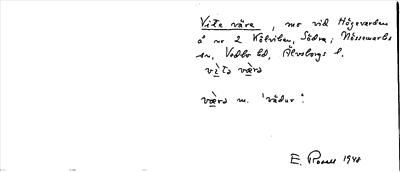 Vite väre, mo vid Högevarden
å nr 2 Kålviken, Södra; Nössemarks
sn, Vedbo hd, Älvsborgs l.
vìtə væ̀rə
væ̀rə m. 'vädur'.
E. Rosell 1948